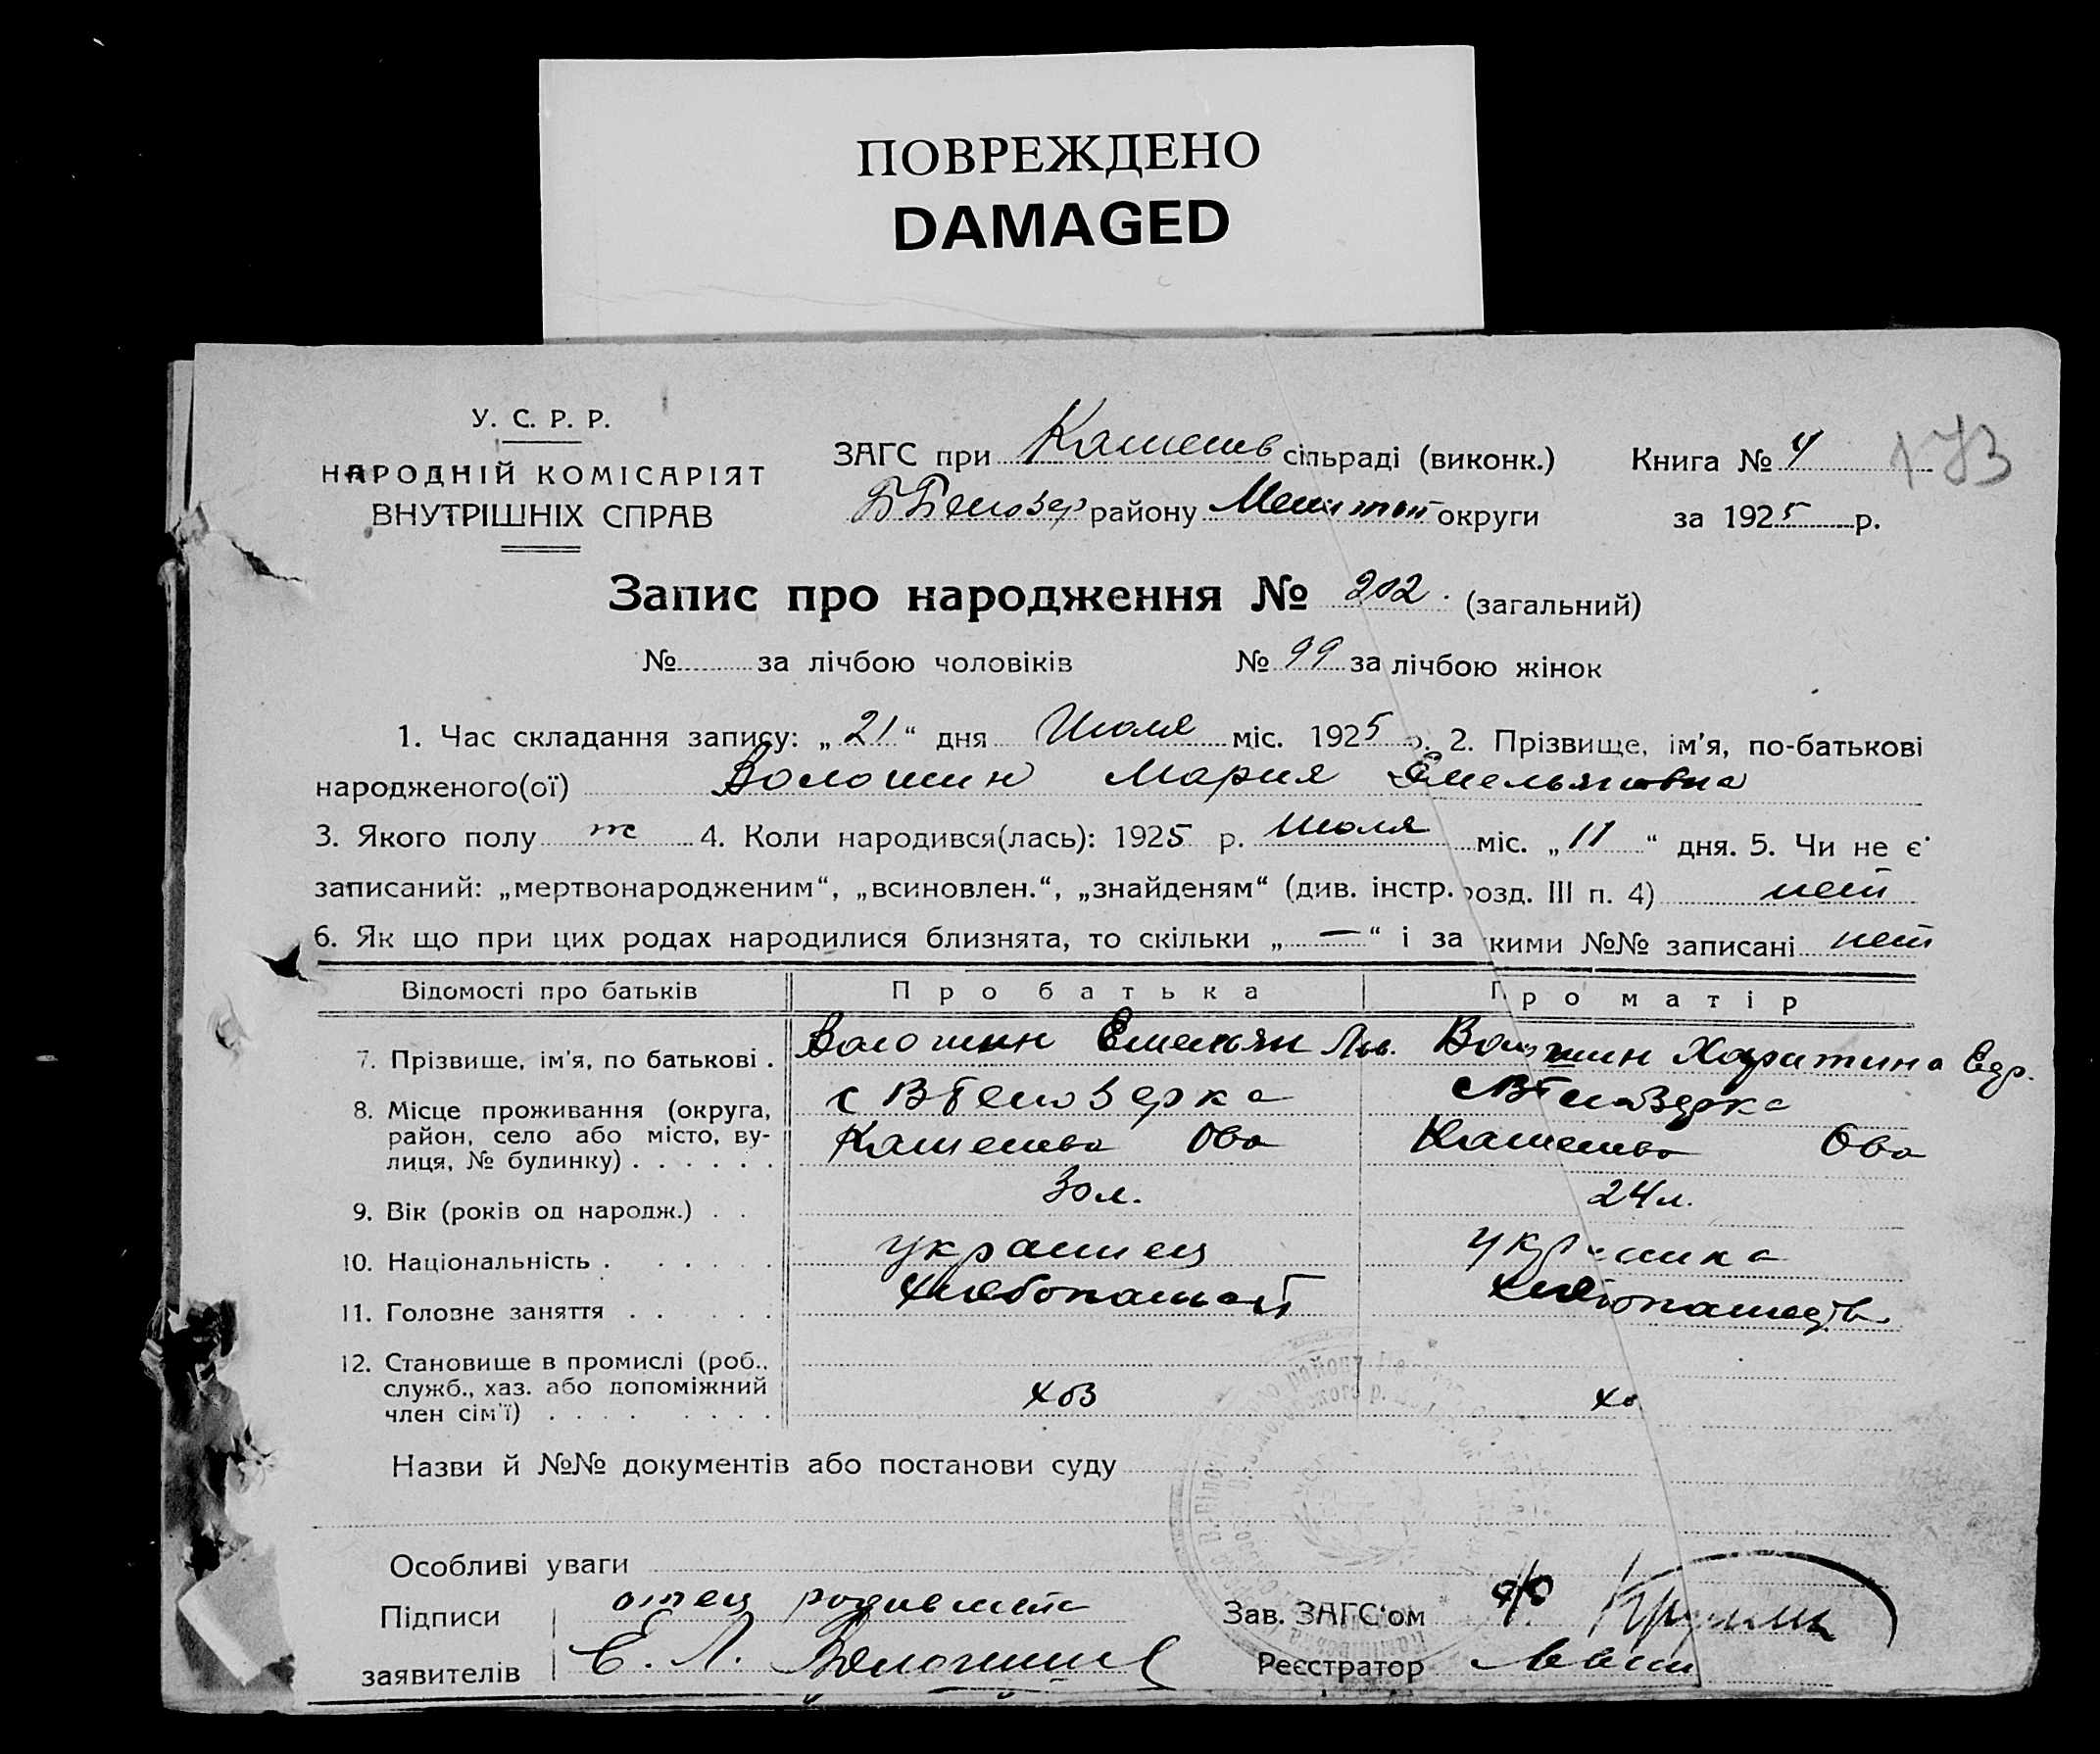 ПОВРЕЖДЕНО
DAMAGED
У. С. Р. Р.
НАРОДНІЙ КОМІСАРІЯТ
ВНУТРІШНІХ СПРАВ
ЗАГС при сільраді (виконк.)
Книга № 4
173
району округи
за 1925 р.
Запис про народження № 202. (загальний)
№ за лічбою чоловіків № 99 за лічбою жінок
1. Час складання запису: „ 21 “ дня Июля міс. 1925 р. 2. Прізвище, ім’я, по-батькові
народженого(ої) Волошин Мария Емельяновна
3. Якого полу ж 4. Коли народився(лась): 1925 р. Июля міс. „ 11 “ дня. 5. Чи не є
записаний: „мертвонародженим“, „всиновлен.“, „знайденям“ (див. інстр. розд. III п. 4) нет
6. Як що при цих родах народилися близнята, то скільки „ — “ і за кими №№ записані нет
Відомості про батьків
Про батька
Про матір
7. Прізвище, ім’я, по батькові . Волошин Емельян Лав. Волошин Харитина
8. Місце проживання (округа, с Вбелозерка
район, село або місто, ву-
лиця, № будинку) . . . . . .
9. Вік (років од народж.) . . 30 л. 24 л.
10. Національність . . . . . . украинец украинка
11. Головне заняття . . . . . хлебопашест
12. Становище в промислі (роб..
служб., хаз. або допоміжний
член сім’ї) . . . . . . . . хоз хо
Назви й №№ документів або постанови суду
Особливі уваги
Підписи
отец
заявителів
Е. Л. Волошин
Зав. ЗАГС‘ом
Реєстратор